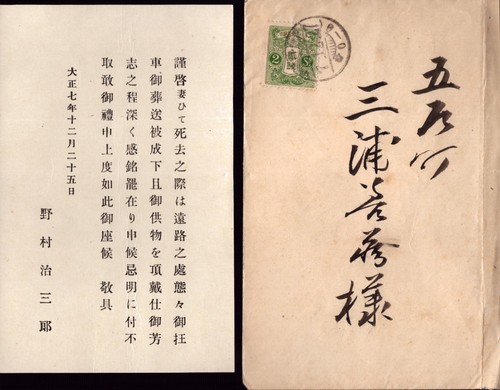 謹啓妻ひて死去之際は遠路之處態々御抂
車御葬送被成下且御供物を頂戴仕御芳
志之程深く感銘罷在り申候忌明に付不
取敢御禮申上度如此御座候 敬具
大正七年十二月二十五日
野村治三郎
2
三浦
様